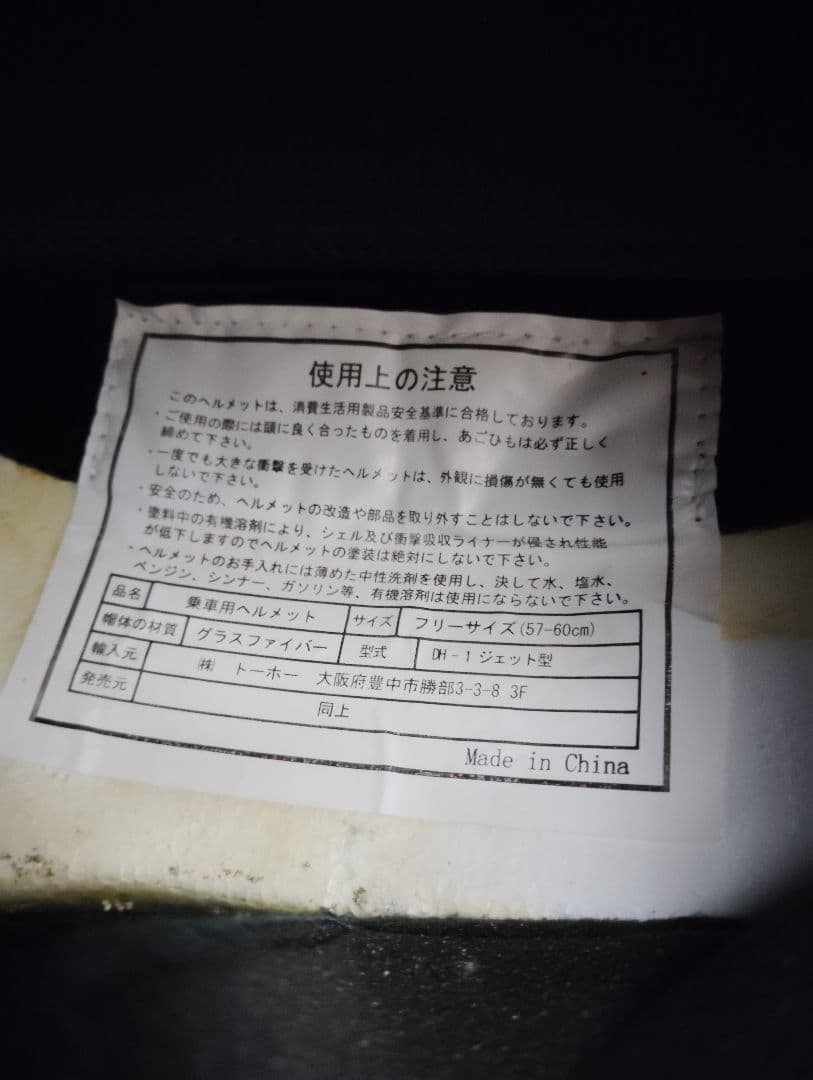 使用上の注意
このヘルメットは、消費生活用製品安全基準に合格しております。
・ご使用の際には頭に良く合ったものを着用し、あごひもは必ず正しく
締めて下さい。
・一度でも大きな衝撃を受けたヘルメットは、外観に損傷が無くても使用
しないで下さい。
・安全のため、ヘルメットの改造や部品を取り外すことはしないで下さい。
・塗料中の有機溶剤により、シェル及び衝撃吸収ライナーが侵され性能
が低下しますのでヘルメットの塗装は絶対にしないで下さい。
・ヘルメットのお手入れには薄めた中性洗剤を使用し、決して水、塩水、
ベンジン、シンナー、ガソリン等、有機溶剤は使用にならないで下さい。
品名 乗車用ヘルメット サイズ フリーサイズ(57-60cm)
帽体の材質 グラスファイバー 型式 DH-1 ジェット型
輸入元 ㈱ トーホー 大阪府豊中市勝部3-3-8 3F
発売元 同上
Made in China